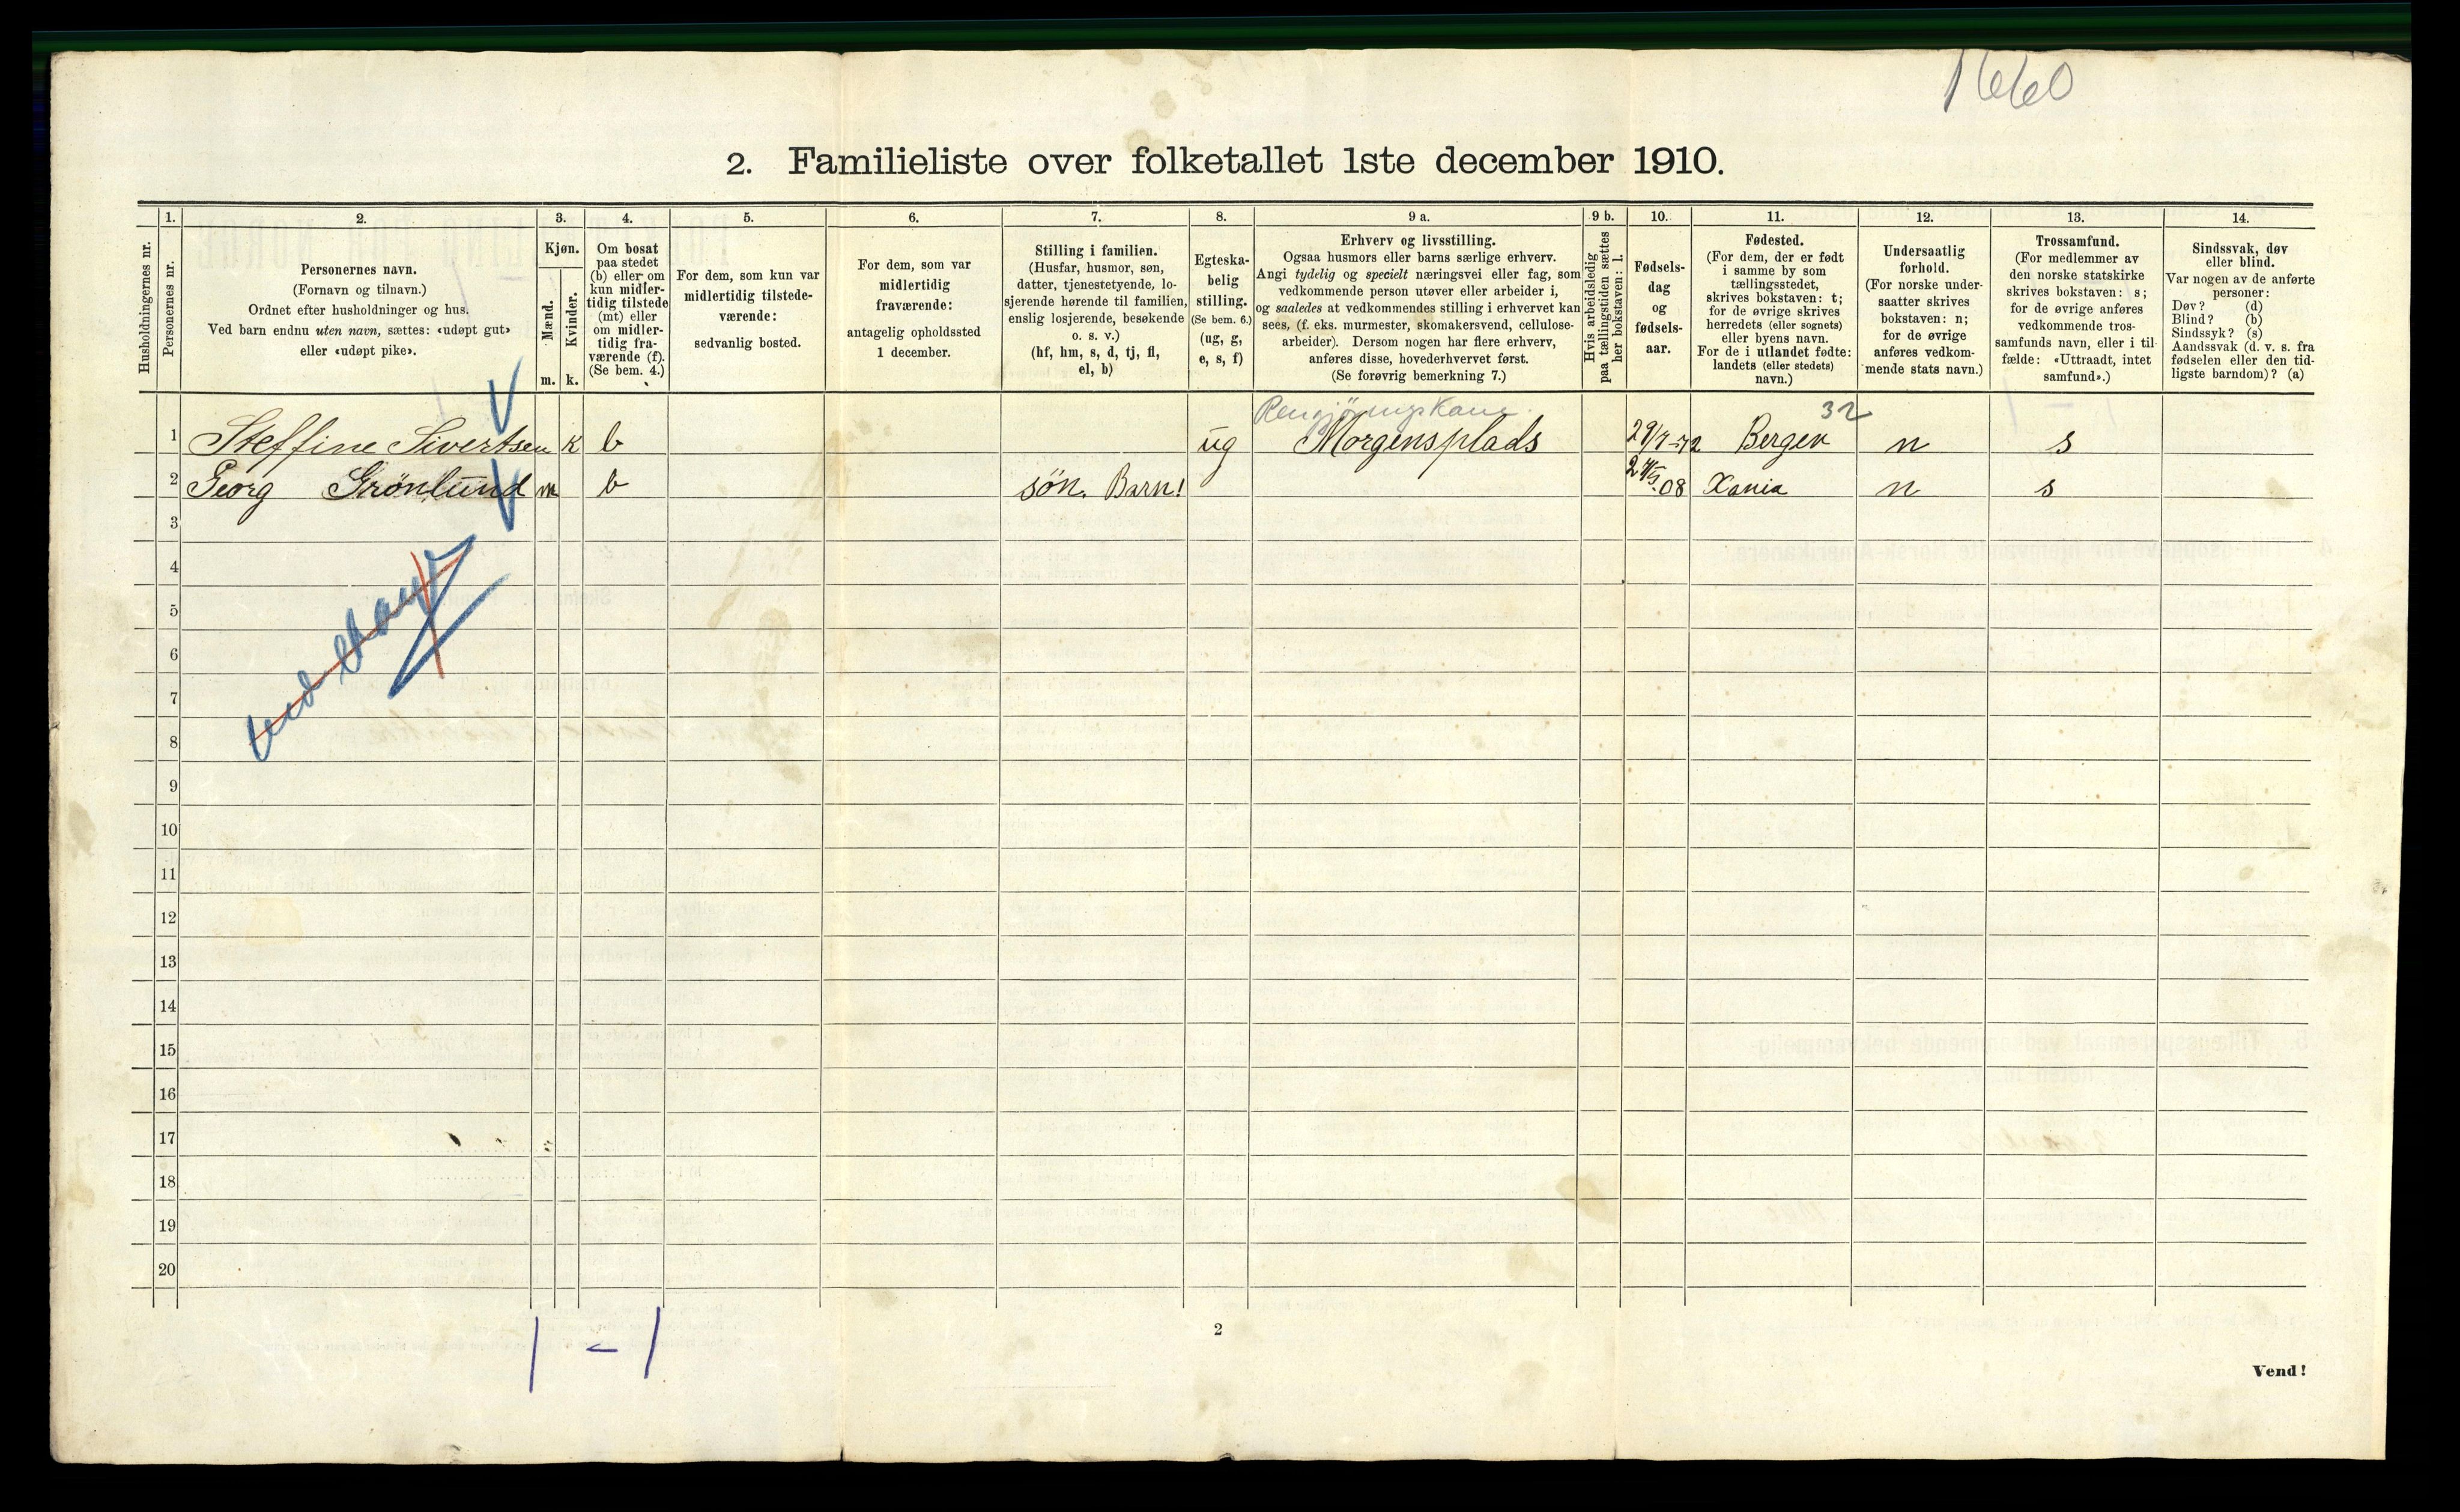 1660
2. Familieliste over folketallet 1ste december 1910.
Husholdningernes nr.
1.
Personernes nr.
2.
Personernes navn.
(Fornavn og tilnavn.)
Ordnet efter husholdninger og hus.
Ved barn endnu uten navn, sættes: «udøpt gut»
eller «udøpt pike».
3.
Kjøn.
Mænd.
Kvinder.
m. k.
4.
Om bosat
paa stedet
(b) eller om
kun midler-
tidig tilstede
(mt) eller
om midler-
tidig fra-
værende (f).
(Se bem. 4.)
5.
For dem, som kun var
midlertidig tilstede-
værende:
sedvanlig bosted.
6.
For dem, som var
midlertidig
fraværende:
antagelig opholdssted
1 december.
7.
Stilling i familien.
(Husfar, husmor, søn,
datter, tjenestetyende, lo-
sjerende hørende til familien,
enslig losjerende, besøkende
o. s. v.)
(hf, hm, s, d, tj, fl,
el, b)
8.
Egteska-
belig
stilling.
(Se bem. 6.)
(ug, g,
e, s, f)
9 a.
Erhverv og livsstilling.
Ogsaa husmors eller barns særlige erhverv.
Angi tydelig og specielt næringsvei eller fag, som
vedkommende person utøver eller arbeider i,
og saaledes at vedkommendes stilling i erhvervet kan
sees, (f. eks. murmester, skomakersvend, cellulose-
arbeider). Dersom nogen har flere erhverv,
anføres disse, hovederhvervet først.
(Se forøvrig bemerkning 7.)
9 b.
Hvis arbeidsledig
paa tællingstiden sættes
her bokstaven: l.
10.
Fødsels-
dag
og
fødsels-
aar.
11.
Fødested.
(For dem, der er født
i samme by som
tællingsstedet,
skrives bokstaven: t;
for de øvrige skrives
herredets (eller sognets)
eller byens navn.
For de i utlandet fødte:
landets (eller stedets)
navn.)
12.
Undersaatlig
forhold.
(For norske under-
saatter skrives
bokstaven: n;
for de øvrige
anføres vedkom-
mende stats navn.)
13.
Trossamfund.
(For medlemmer av
den norske statskirke
skrives bokstaven: s;
for de øvrige anføres
vedkommende tros-
samfunds navn, eller i til-
fælde: «Uttraadt, intet
samfund».)
14.
Sindssvak, døv
eller blind.
Var nogen av de anførte
personer:
Døv? (d)
Blind? (b)
Sindssyk? (s)
Aandssvak (d. v. s. fra
fødselen eller den tid-
ligste barndom)? (a)
Rengjöringskone 32
1 Steffine Sivertsen k b ug Morgensplads 29/7-72 Bergen n s
2 Georg Grönlund m b sön. Barn! 24/5.08 Xania n s
3
4
5
6
7
8
9
10
11
12
13
14
15
16
17
18
19
20
1 - 1
2
Vend!